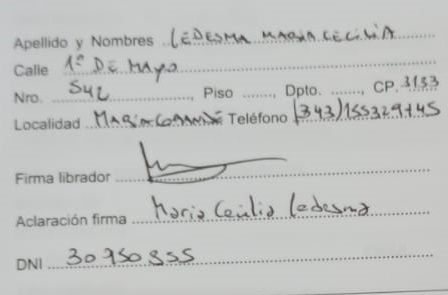 Apellido y Nombres LEDESMA MARIA CECILIA
Calle 1º DE MAYO
Nro. 542, Piso ........, Dpto. ........, CP. 3133
Localidad MARIA GRANDE Teléfono (343)155329445
Firma librador
Aclaración firma Maria Cecilia Ledesma
DNI 30950855